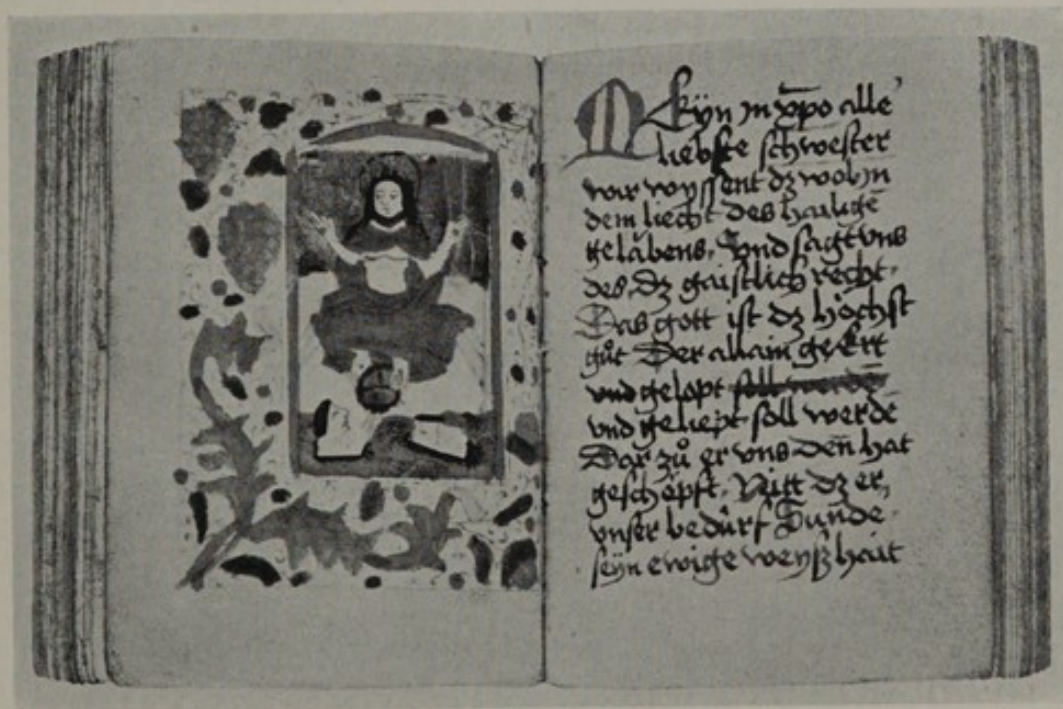 Meyn in xp̄o alle
liebste schwester
wir wyssent dz wol jn
dem liecht des hailigē
gelăbens. Vnd sagt vns
des dz gaistlich recht.
Das gott ist dz höchst
gůt Der allain geErt
vnd gelopt soll werdē
vnd geliept soll werde
Dar zů er vns den̄ hat
geschepft. Nitt dz er,
vnser bedürf Sunde
seyn ewige weyßhait